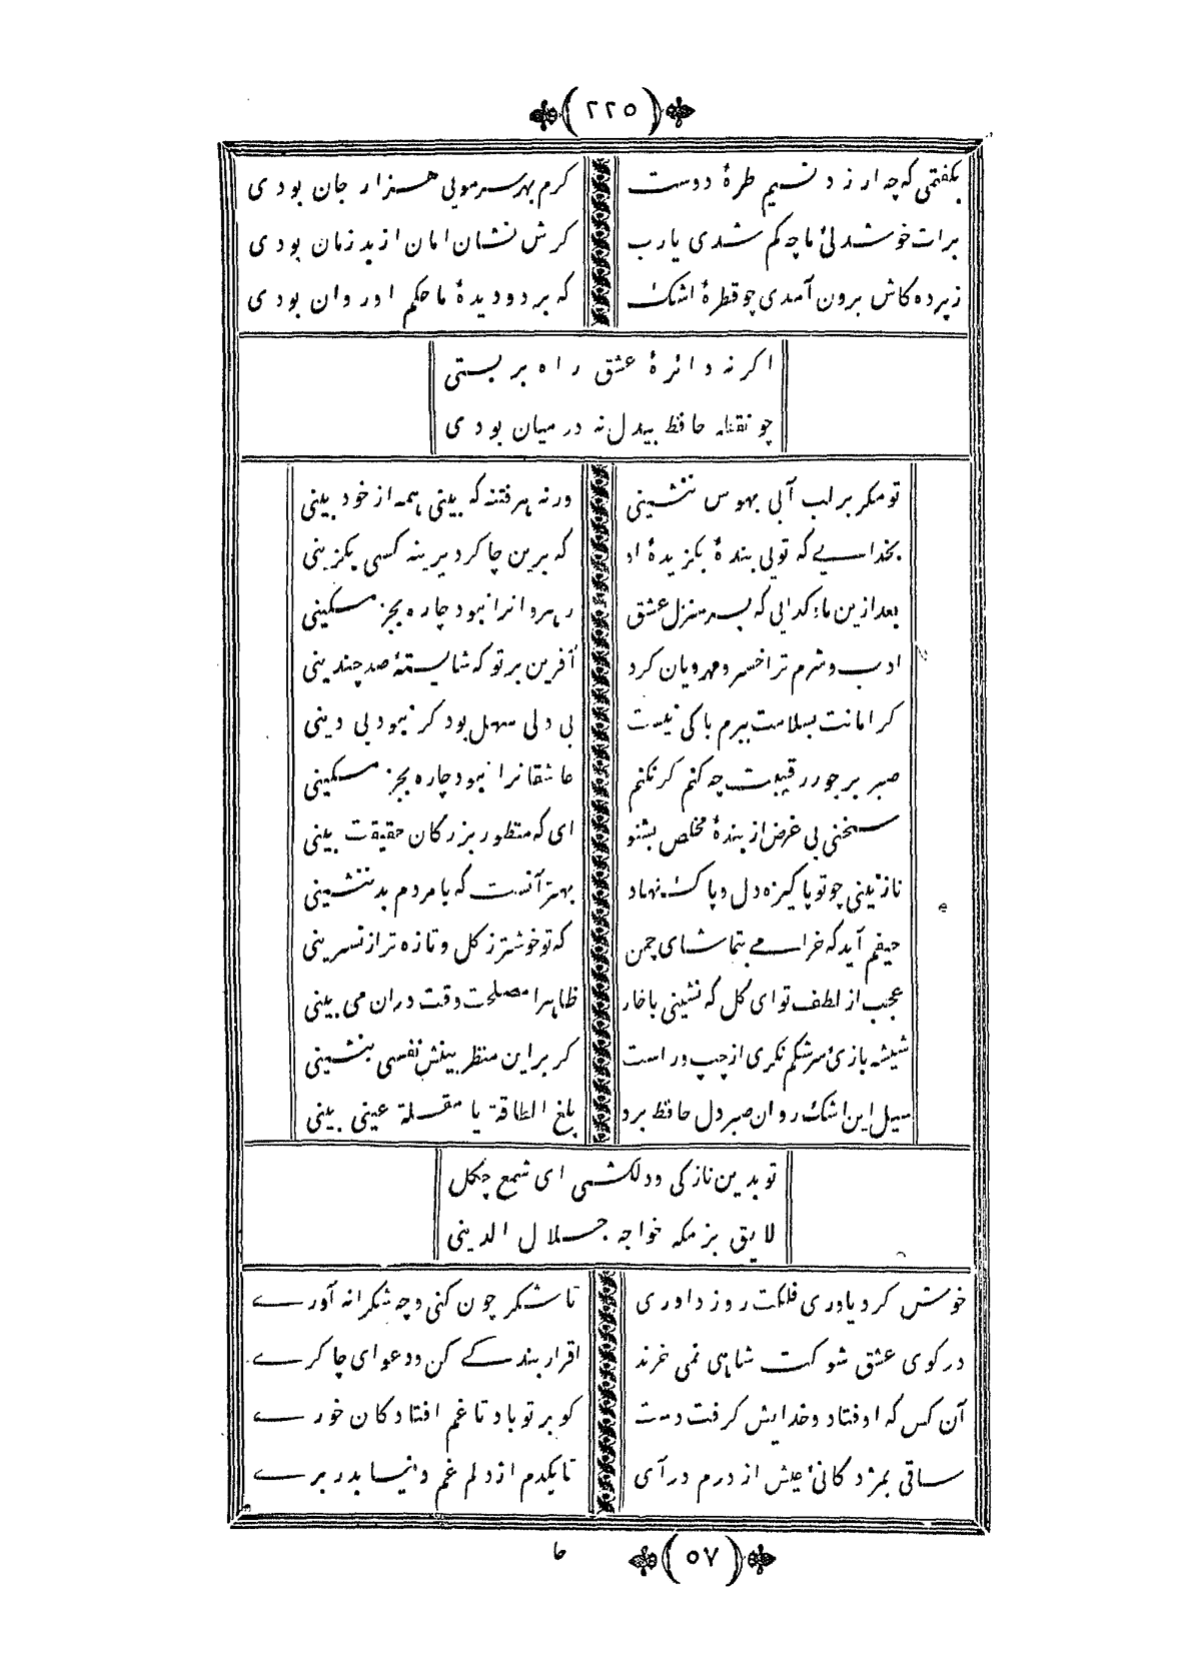 ٢٢٥
بکفتمی که چه ارزد نسیم طرهٔ دوست
کرم بهر سر مویی هزار جان بودی
برات خوشدلیٔ ما چه کم شدی یارب
کرش نشان امان از بد زمان بودی
ز پرده کاش برون آمدی چو قطرهٔ اشک
که بر دو دیدهٔ ما حکم او روان بودی
اکر نه دائرهٔ عشق راه بر بستی
چو نقطه حافظ بیدل نه در میان بودی
تو مکر بر لب آبی بهوس ننشینی
ورنه هر فتنه که بینی همه از خود بینی
بخدایی که تویی بندهٔ بکزیدهٔ او
که برین چاکر دیرینه کسی نکزینی
بعد ازین ما و کدایی که بسر منزل عشق
رهروانرا نبود چاره بجز مسکینی
ادب و شرم ترا خسرو مهرویان کرد
آفرین بر تو که شایستهٔ صد چندینی
کر امانت بسلامت ببرم باکی نیست
بی دلی سهل بود کر نبود بی دینی
صبر بر جور رقیبت چه کنم کر نکنم
عاشقانرا نبود چاره بجز مسکینی
سخنی بی غرض از بندهٔ مخلص بشنو
ای که منظور بزرکان حقیقت بینی
نازنینی چو تو پاکیزه دل و پاک نهاد
بهتر آنست که با مردم بد ننشینی
حیفم آید که خرامی بتماشای چمن
که تو خوشتر ز کل و تازه تر از نسرینی
عجب از لطف تو ای کل که نشینی با خار
ظاهرا مصلحت وقت دران می بینی
شیشه بازیٔ سرشکم نکری از چپ و راست
کر بر این منظر بینش نفسی بنشینی
سیل این اشک روان صبر دل حافظ برد
بلغ الطاقة یا مقلة عینی بینی
تو بدین نازکی و دلکشی ای شمع چکل
لایق بزمکه خواجه جلال الدینی
خوش کرد یاوری فلکت روز داوری
تا شکر چون کنی و چه شکرانه آوری
در کوی عشق شوکت شاهی نمی خرند
اقرار بندکی کن و دعوای چاکری
آن کس که اوفتاد و خدایش کرفت دست
کو بر تو باد تا غم افتادکان خوری
ساقی بمژدکانیٔ عیش از درم درآی
تا یکدم از دلم غم دنیا بدر بری
٥٧
حا